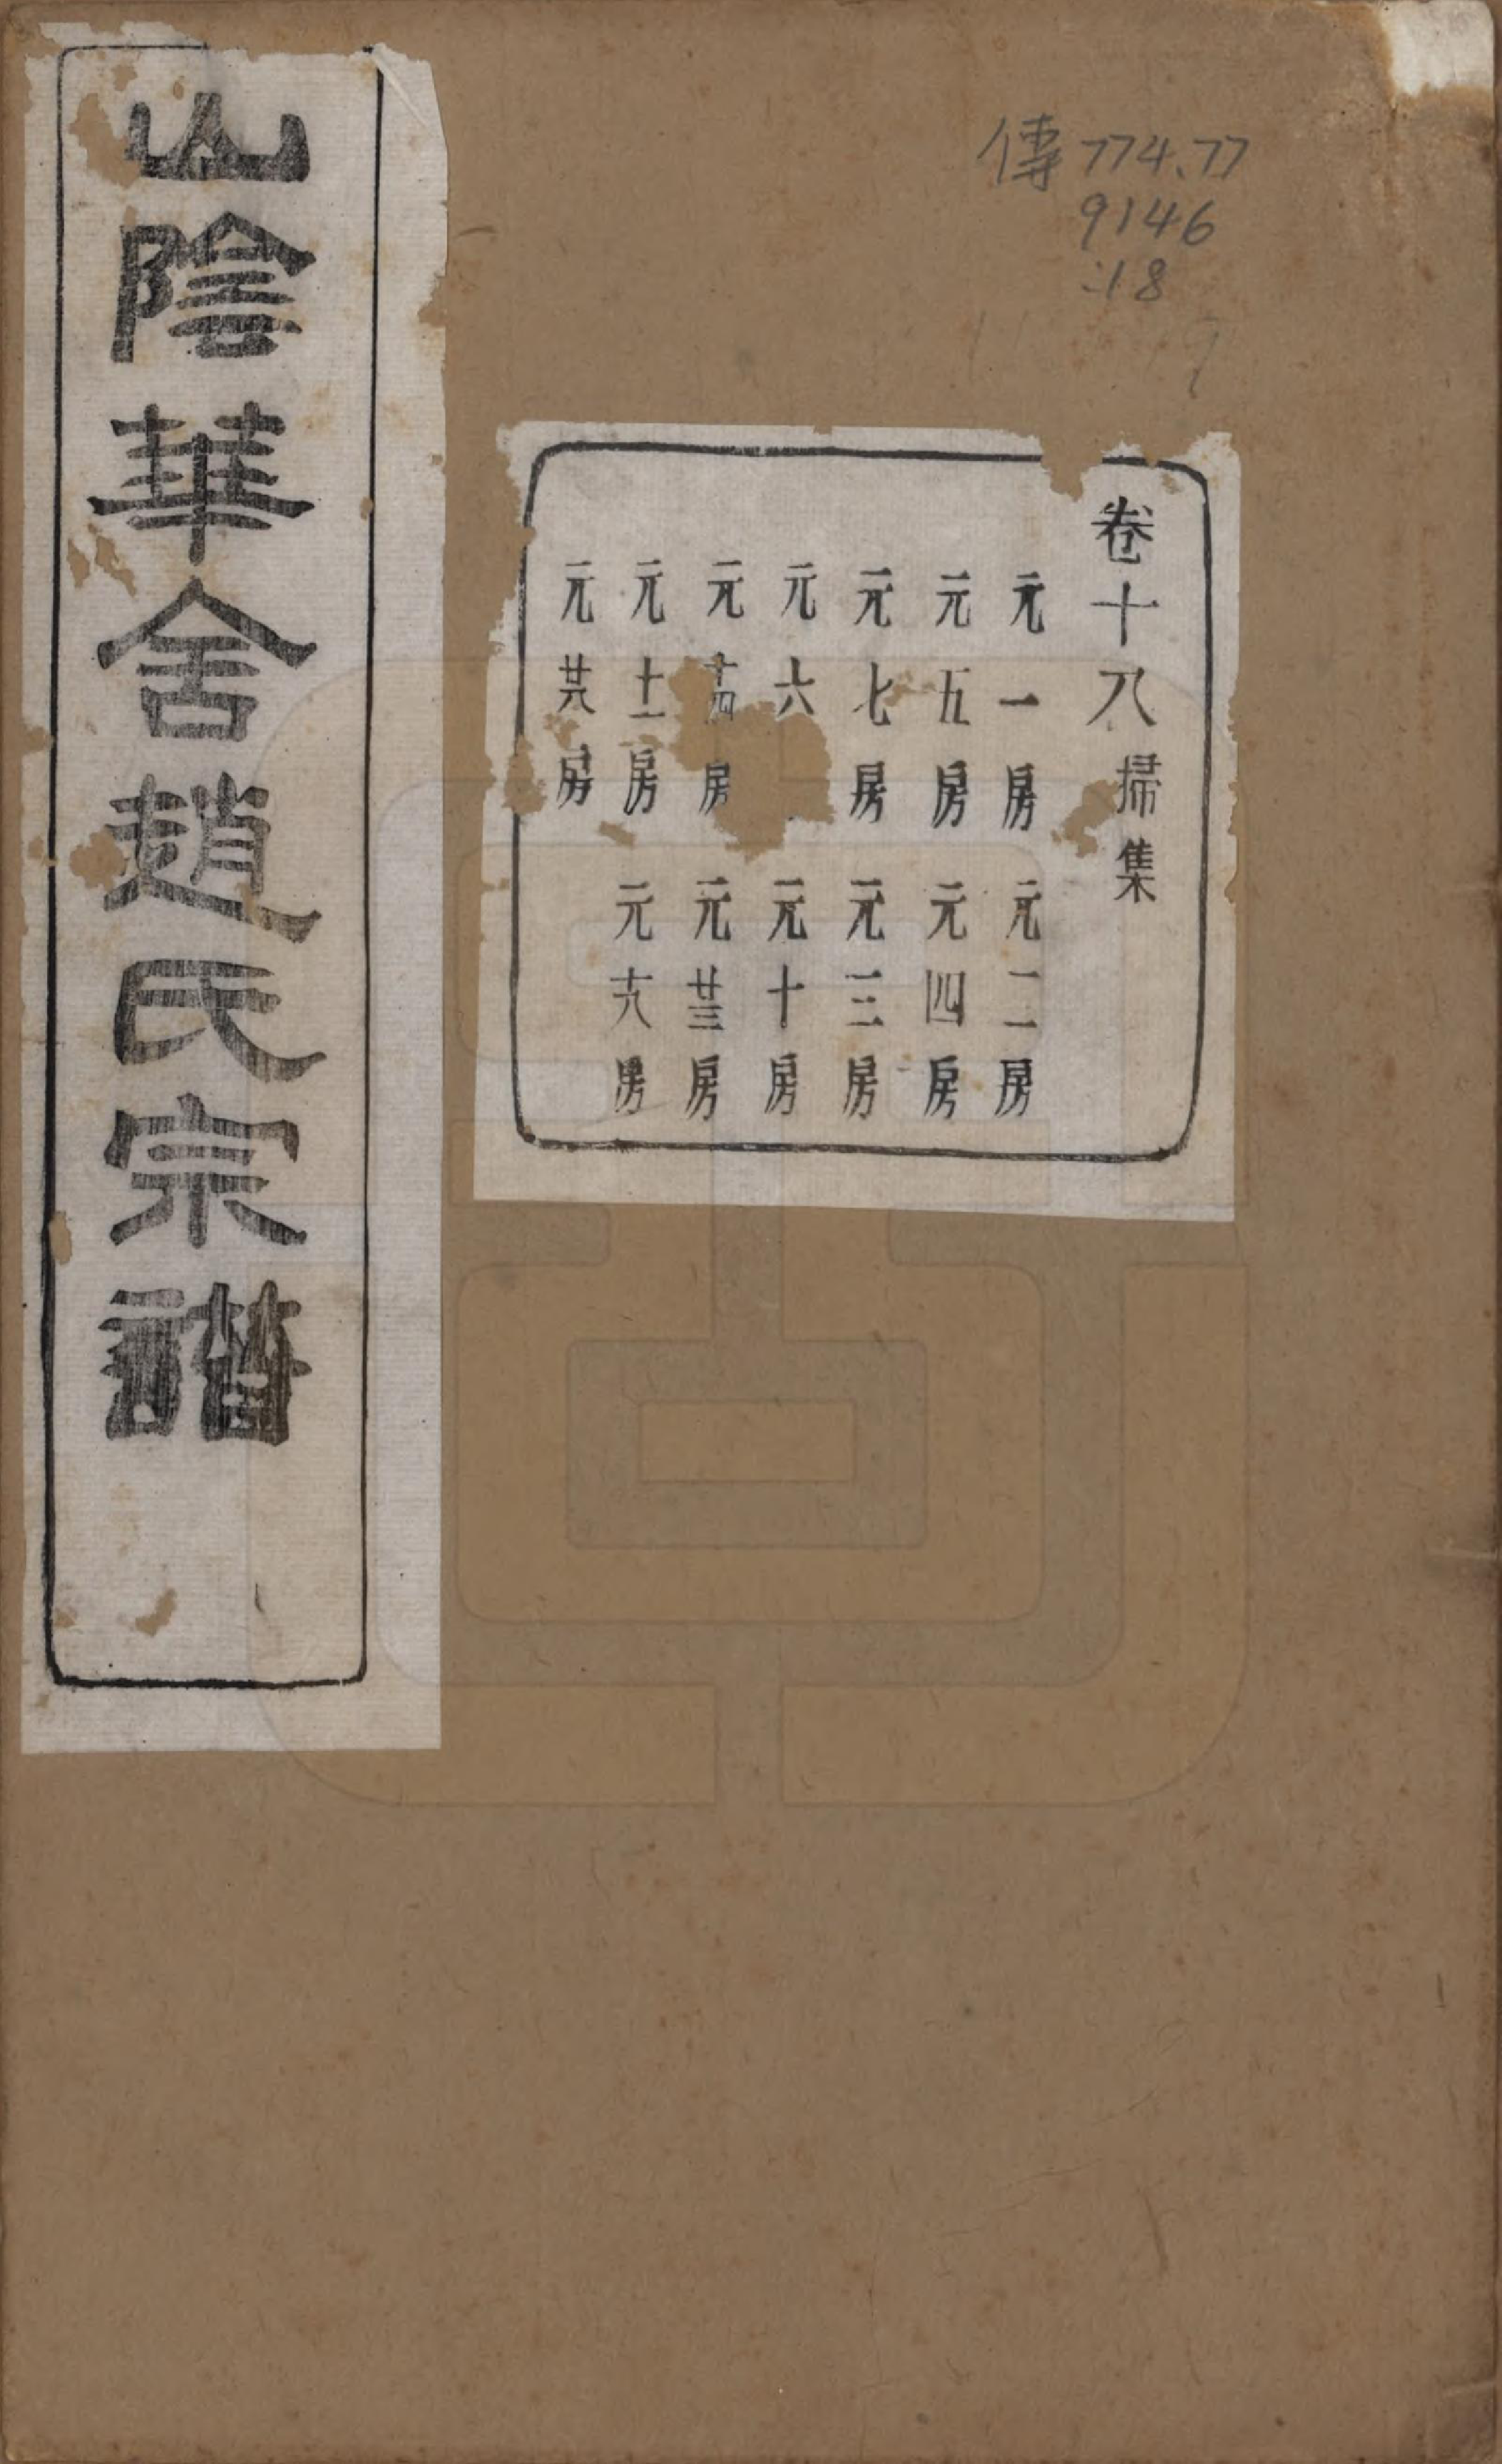 山陰華舍趙氏宗譜
傳 774.77
9146
:18
卷十八 掃集
元一房 元二房
元五房 元四房
元七房 元三房
元六 元十房
元 房 元廿三房
元十一房 元十六房
元廿六房